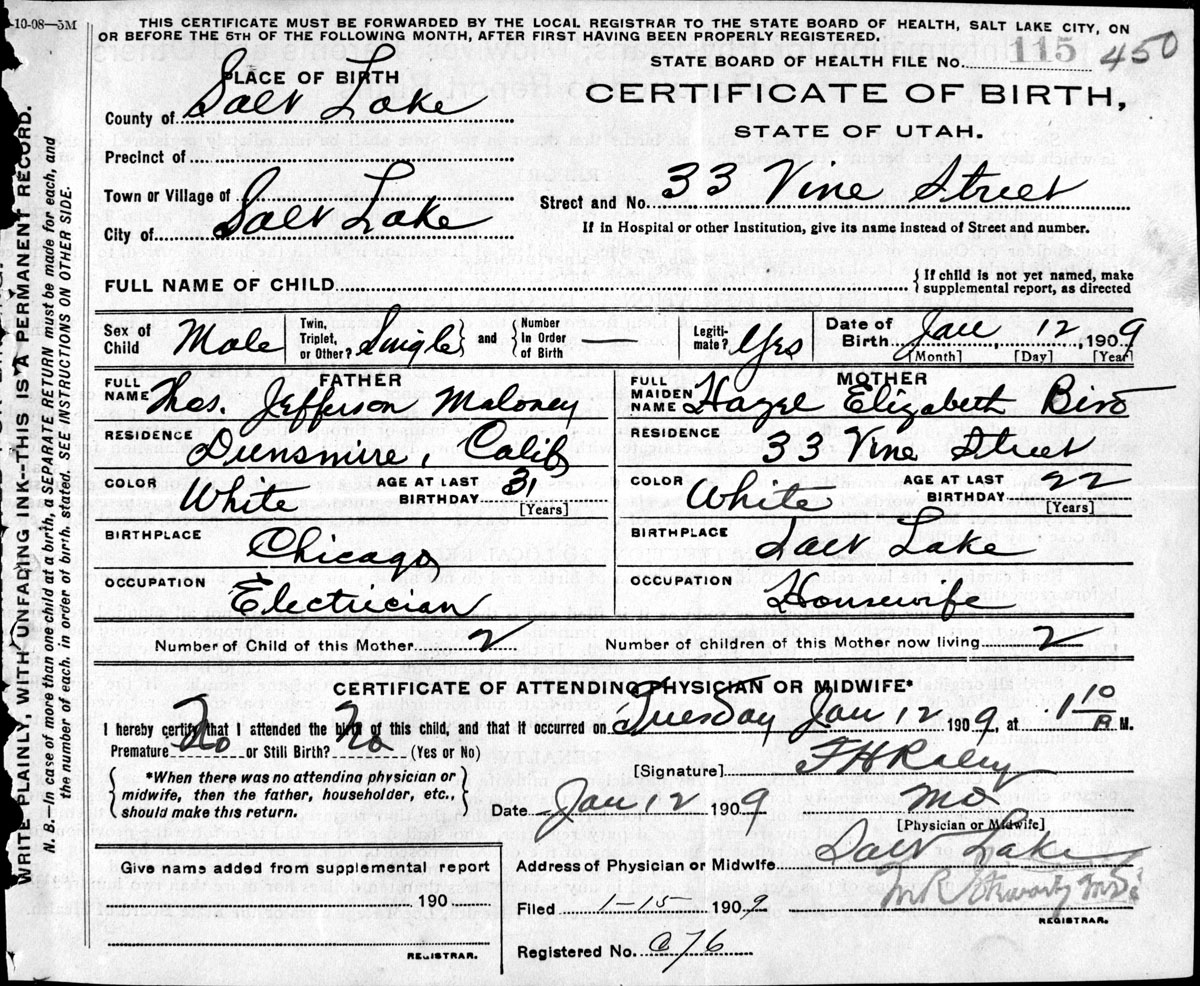 -10-08—5M
THIS CERTIFICATE MUST BE FORWARDED BY THE LOCAL REGISTRAR TO THE STATE BOARD OF HEALTH, SALT LAKE CITY, ON
OR BEFORE THE 5TH OF THE FOLLOWING MONTH, AFTER FIRST HAVING BEEN PROPERLY REGISTERED.
STATE BOARD OF HEALTH FILE No. 115 450
PLACE OF BIRTH
County of Salt Lake
CERTIFICATE OF BIRTH,
STATE OF UTAH.
Precinct of
Town or Village of
City of Salt Lake
Street and No. 33 Vine Street
If in Hospital or other Institution, give its name instead of Street and number.
FULL NAME OF CHILD
{If child is not yet named, make
supplemental report, as directed
Sex of Child Male
Twin, Triplet, or Other? Single } and { Number In Order of Birth —
Legiti-mate? Yes
Date of Birth Jan, 12, 1909
[Month] [Day] [Year]
FATHER
FULL NAME Thos. Jefferson Maloney
RESIDENCE Dunsmire, Calif
COLOR White AGE AT LAST BIRTHDAY 31 [Years]
BIRTHPLACE Chicago
OCCUPATION Electrician
MOTHER
FULL MAIDEN NAME Hazel Elizabeth
RESIDENCE 33 Vine Street
COLOR White AGE AT LAST BIRTHDAY 22 [Years]
BIRTHPLACE Salt Lake
OCCUPATION Housewife
Number of Child of this Mother 2 Number of children of this Mother now living 2
CERTIFICATE OF ATTENDING PHYSICIAN OR MIDWIFE*
I hereby certify that I attended the birth of this child, and that it occurred on Tuesday Jan 12 1909, at 1 10 P. M.
Premature No or Still Birth? No (Yes or No)
{*When there was no attending physician or
midwife, then the father, householder, etc.,
should make this return.}
[Signature] F H Raley
Date Jan 12 1909 MD
[Physician or Midwife]
Address of Physician or Midwife Salt Lake
Filed 1-15- 1909
REGISTRAR.
Registered No. 76
Give name added from supplemental report
190
REGISTRAR.
WRITE PLAINLY, WITH UNFADING INK--THIS IS A PERMANENT RECORD.
N. B.—In case of more than one child at a birth, a SEPARATE RETURN must be made for each, and
the number of each, in order of birth, stated. SEE INSTRUCTIONS ON OTHER SIDE.